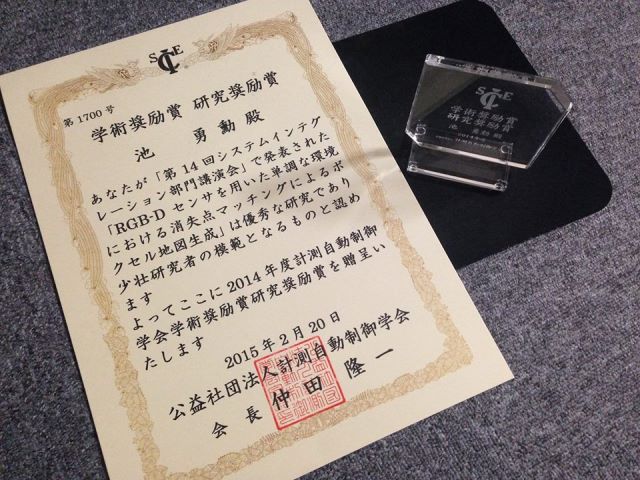 SICE
第1700号
学術奨励賞 研究奨励賞
池 勇勳 殿
あなたが「第14回システムインテグ
レーション部門講演会」で発表された
「RGB-D センサを用いた単調な環境
における消失点マッチングによるボ
クセル地図生成」は優秀な研究であり
少壮研究者の模範となるものと認め
ます
よってここに2014年度計測自動制御
学会学術奨励賞研究奨励賞を贈呈い
たします
2015年2月20日
公益社団法人計測自動制御学会
会長 仲田 隆一
SICE
学術奨励賞
研究奨励賞
池 勇勳 殿